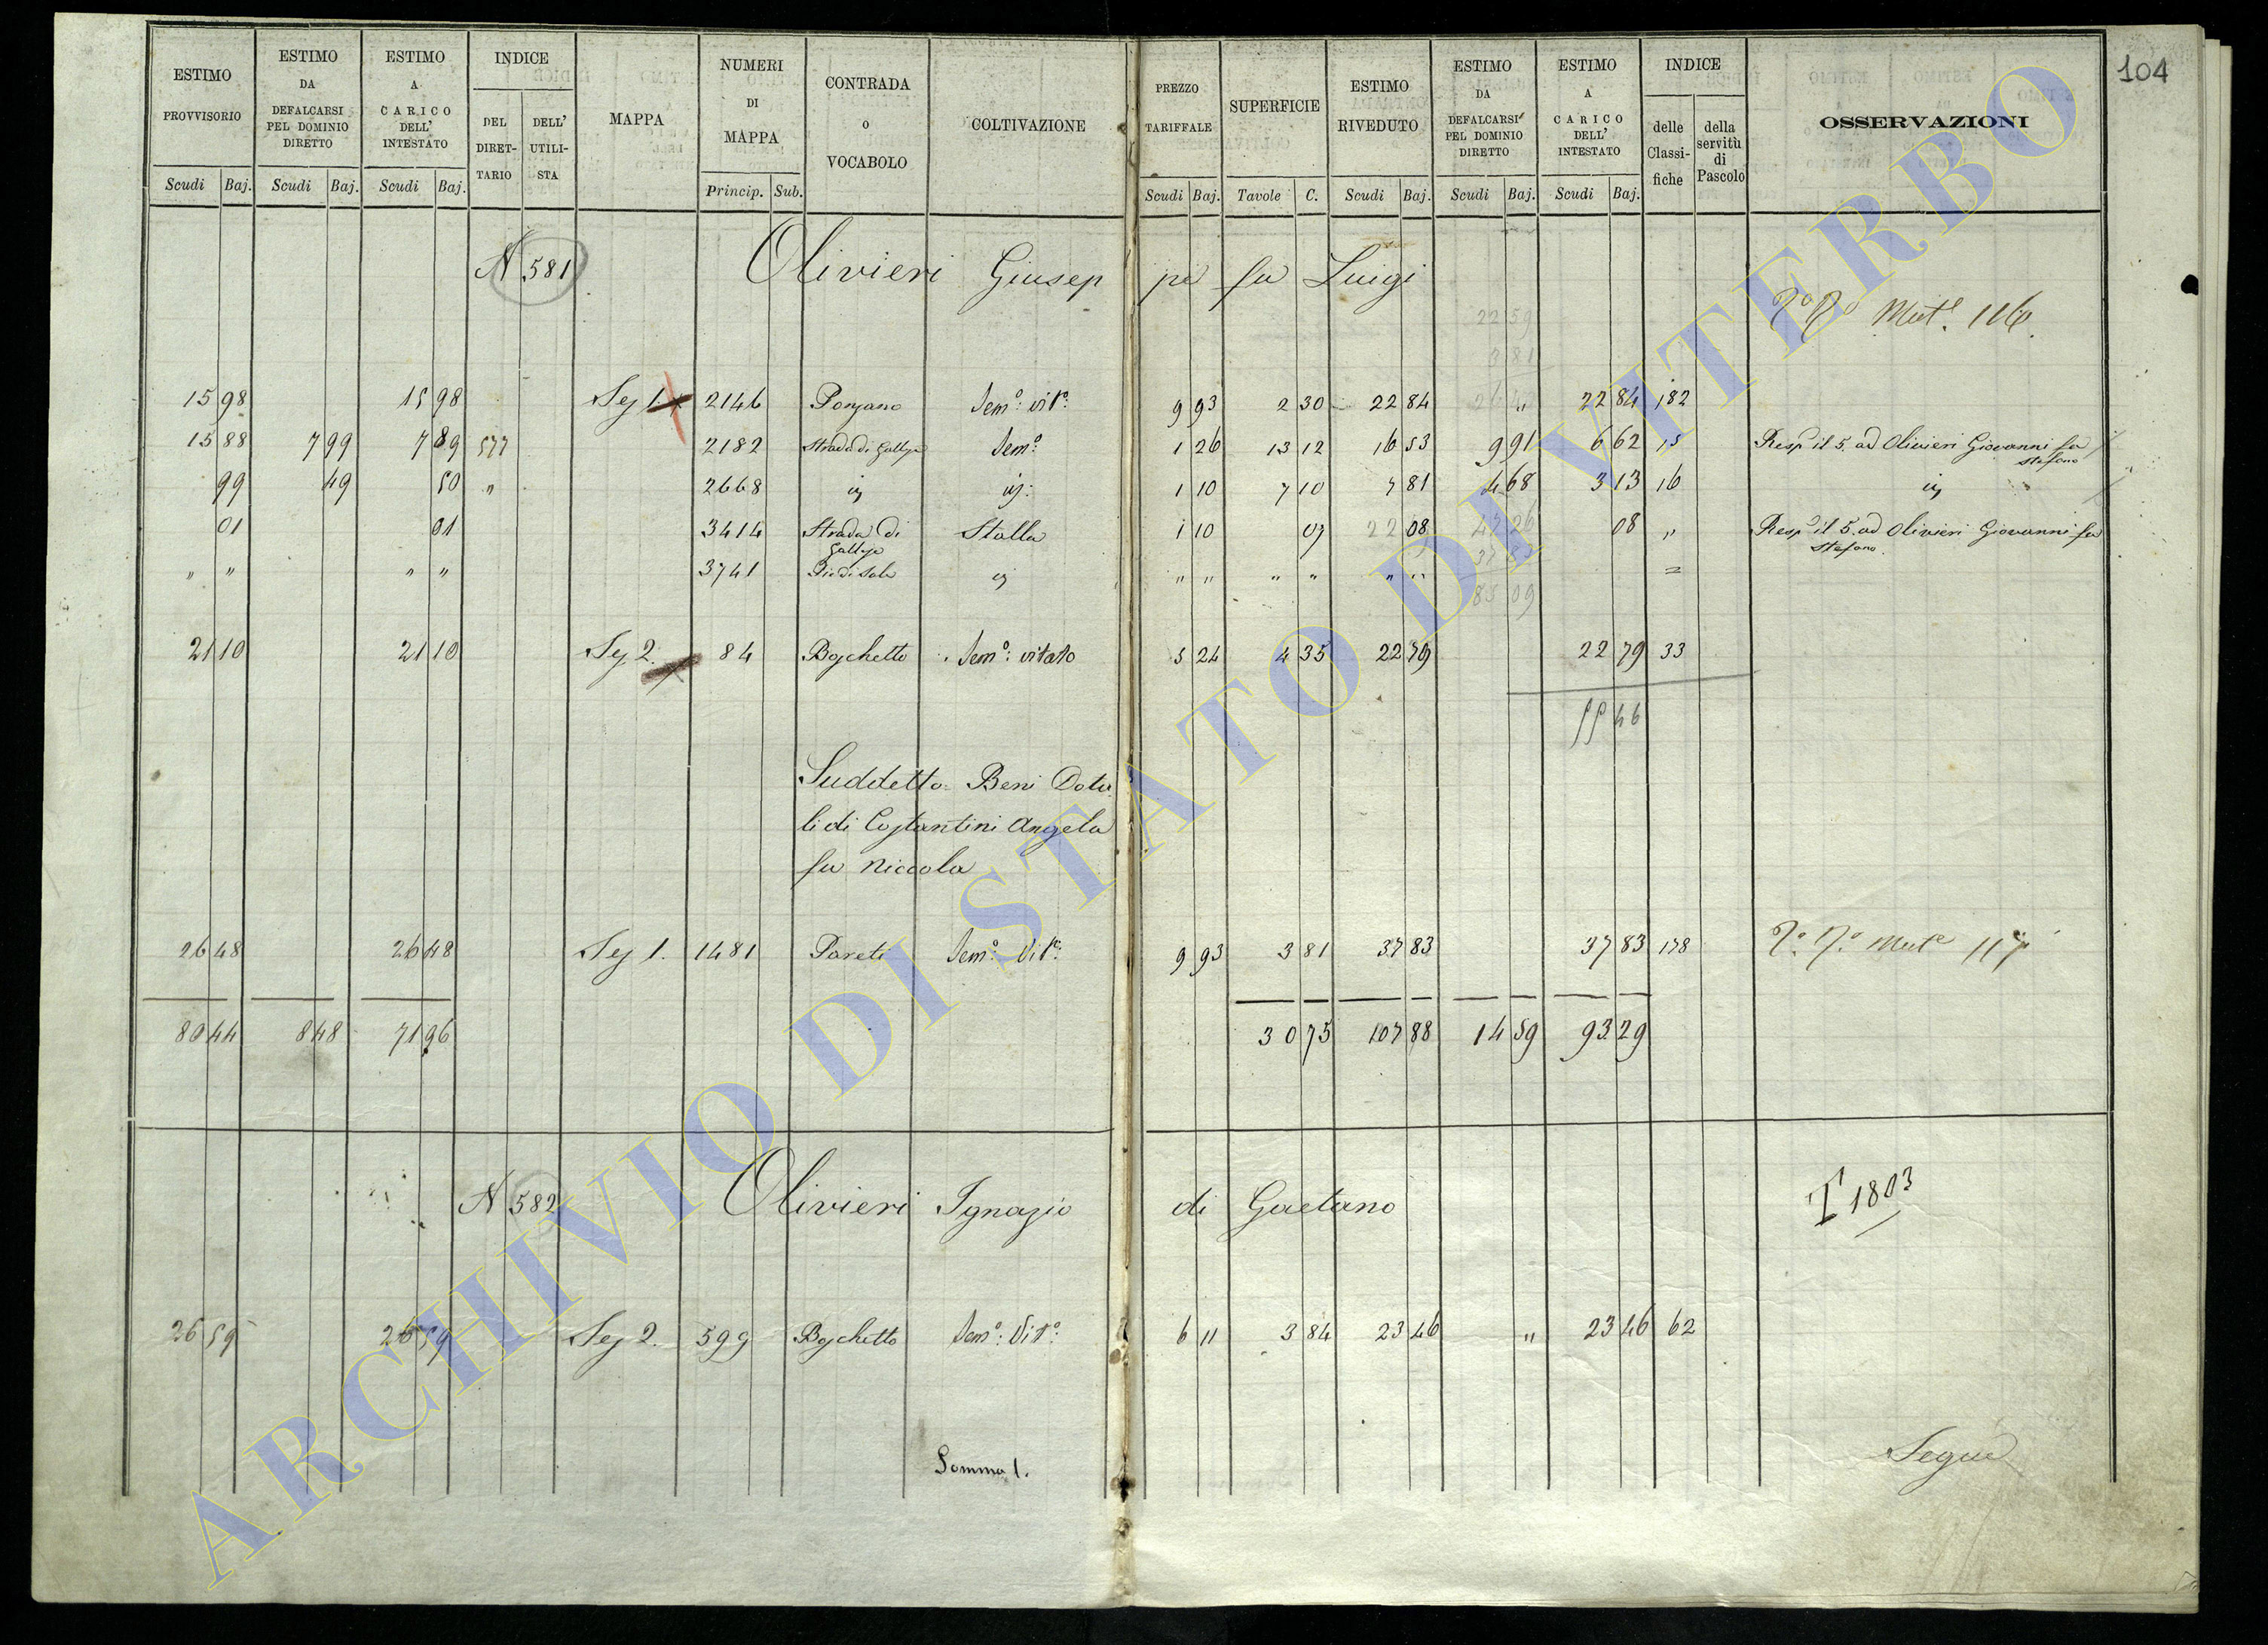 104
ESTIMO PROVVISORIO Scudi Baj. ESTIMO DA DEFALCARSI PEL DOMINIO DIRETTO Scudi Baj. ESTIMO A CARICO DELL' INTESTATO Scudi Baj. INDICE DEL DIRETTARIO DELL' UTILISTA MAPPA NUMERI DI MAPPA Princip. Sub. CONTRADA O VOCABOLO COLTIVAZIONE PREZZO TARIFFALE Scudi Baj. SUPERFICIE Tavole C. ESTIMO RIVEDUTO Scudi Baj. ESTIMO DA DEFALCARSI PEL DOMINIO DIRETTO Scudi Baj. ESTIMO A CARICO DELL' INTESTATO Scudi Baj. INDICE delle Classifiche della servitù di Pascolo OSSERVAZIONI
N 581 Olivieri Giuseppe fu Luigi
Mut.e 116
22 59
3 81
15 98 15 98 Sez 1. 2146 Ponzano Sem.o: vit.o: 9 93 2 30 22 84 " 22 84 182
15 88 7 99 7 89 577 2182 Strada di Gallese Sem.o 1 26 13 12 16 53 9 91 6 62 15 Resp il 5. ad Olivieri Giovanni fu Stefano
99 49 50 " 2668 ij ij: 1 10 7 10 7 81 4 68 3 13 16 ij
01 01 3414 Strada di Gallese Stalla 1 10 07 08 08 " Resp.e il 5. ad Olivieri Giovanni fu Stefano.
" " " " 3741 Piè di Sole ij " " " " " " =
85 09
21 10 21 10 Sez 2. 84 Boschetto Sem.o: vitato 5 24 4 35 22 79 22 79 33
55 46
Suddetto. Beni Dota
li di Costantini Angela
fu Niccola
26 48 26 48 Sez 1. 1481 Pareti Sem.o: Vit.o: 9 93 3 81 37 83 37 83 178 Mut.e 117
80 44 8 48 71 96 30 75 107 88 14 59 93 29
N 582 Olivieri Ignazio di Gaetano T 1803
26 59 26 59 Sez 2. 599 Boschetto Sem.o: Vit.o: 6 11 3 84 23 46 " 23 46 62
Somma 1.
Segue
ARCHIVIO DI STATO DI VITERBO